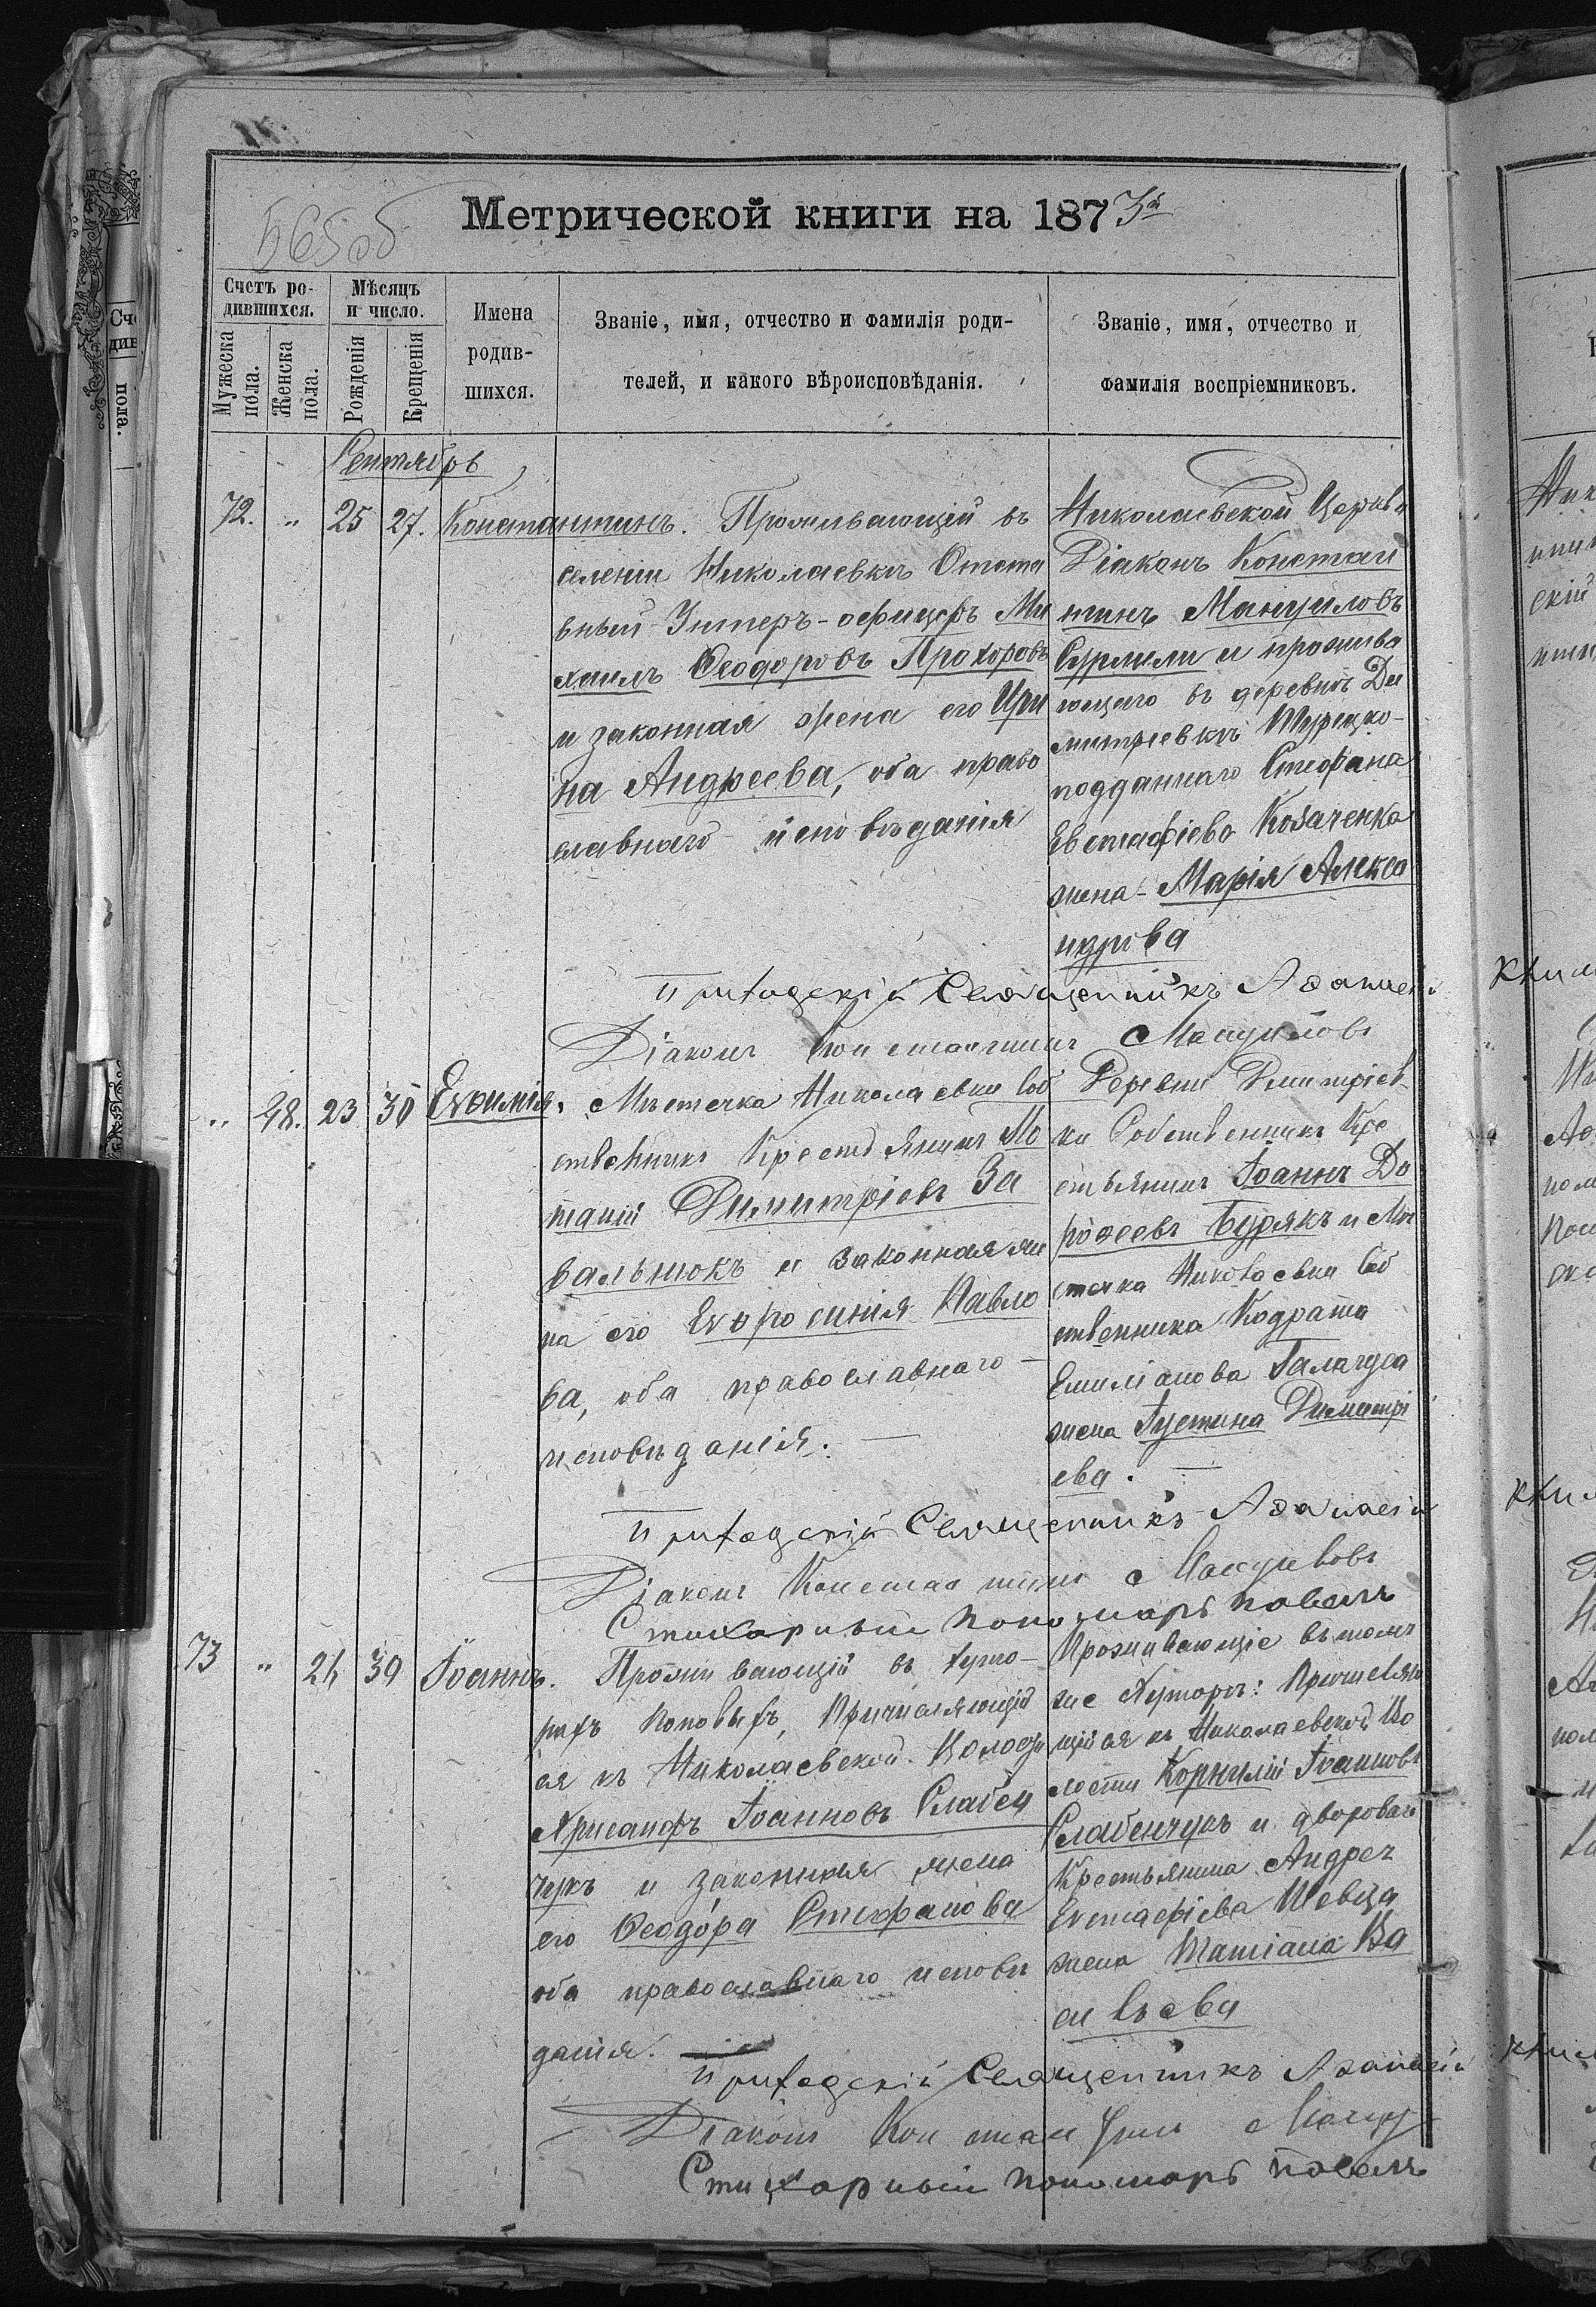 565об
Метрической книги на 1873й
Счетъ ро-
дившихся.
Мужеска пола.
Женска пола.
Мѣсяцъ и число.
Рожденія
Крещенія
Имена
родив-
шихся.
Званіе, имя, отчество и фамилія роди-
телей, и какого вѣроисповѣданія.
Званіе, имя, отчество и
фамилія воспріемниковъ.
Сентябрь
72. „ 25 27. Константинъ.
Проживающій въ
селеніи Николаевкѣ Отста
вный Унтеръ-офицеръ Ми
хаилъ Ѳеодоровъ Прохоровъ
и законная жена его Ири
на Андреева, оба право
славнаго исповѣданія
Николаевской Церкви
Діаконъ Констан
тинъ Мануиловъ
Сурмели и прожива
ющаго въ деревнѣ Ди
митріевкѣ Турецко-
подданнаго Стефана
Евстафіева Козаченка
жена - Марія Алекса
ндрова
Приходскій Священникъ Аѳанасій
Діаконъ Константинъ Мануиловъ
„ 48. 23 30 Евѳимія.
Мѣстечка Николаевки Соб
ственникъ Крестьянинъ По
тапій Димитріевъ За
вальнюкъ и законная же
на его Евфросинія Павло
ва, оба православнаго -
исповѣданія. —
Деревни Димитріев
ки Собственникъ Кре
стьянинъ Іоаннъ До
роѳеевъ Бурякъ и Мѣ
стечка Николаевки Соб
ственника Кодрата
Емиліанова Галагуса
жена Іустина Димитрі
ева. —
Приходскій Священникъ Аѳанасій
Діаконъ Константинъ Мануиловъ
Стихарный Пономарь Павелъ
73 „ 26 30 Іоаннъ.
Проживающій въ хуто-
рахъ Поповыхъ, Причисляющій
ся къ Николаевской Волости
Хрисанфъ Іоанновъ Слабен
чукъ и законная жена
его Ѳеодора Стефанова
оба православнаго исповѣ
данія. —
Проживающіе въ томъ
же Хуторѣ: Причисляю
щійся къ Николаевской Во
лости Корнилій Іоанновъ
Слабенчукъ и двороваго
Крестьянина Андрея
Евстафіева Шевца
жена Татіана Ва
сильева
Приходскій Священникъ Аѳанасій
Діаконъ Константинъ Ману
Стихарный Пономарь Павелъ